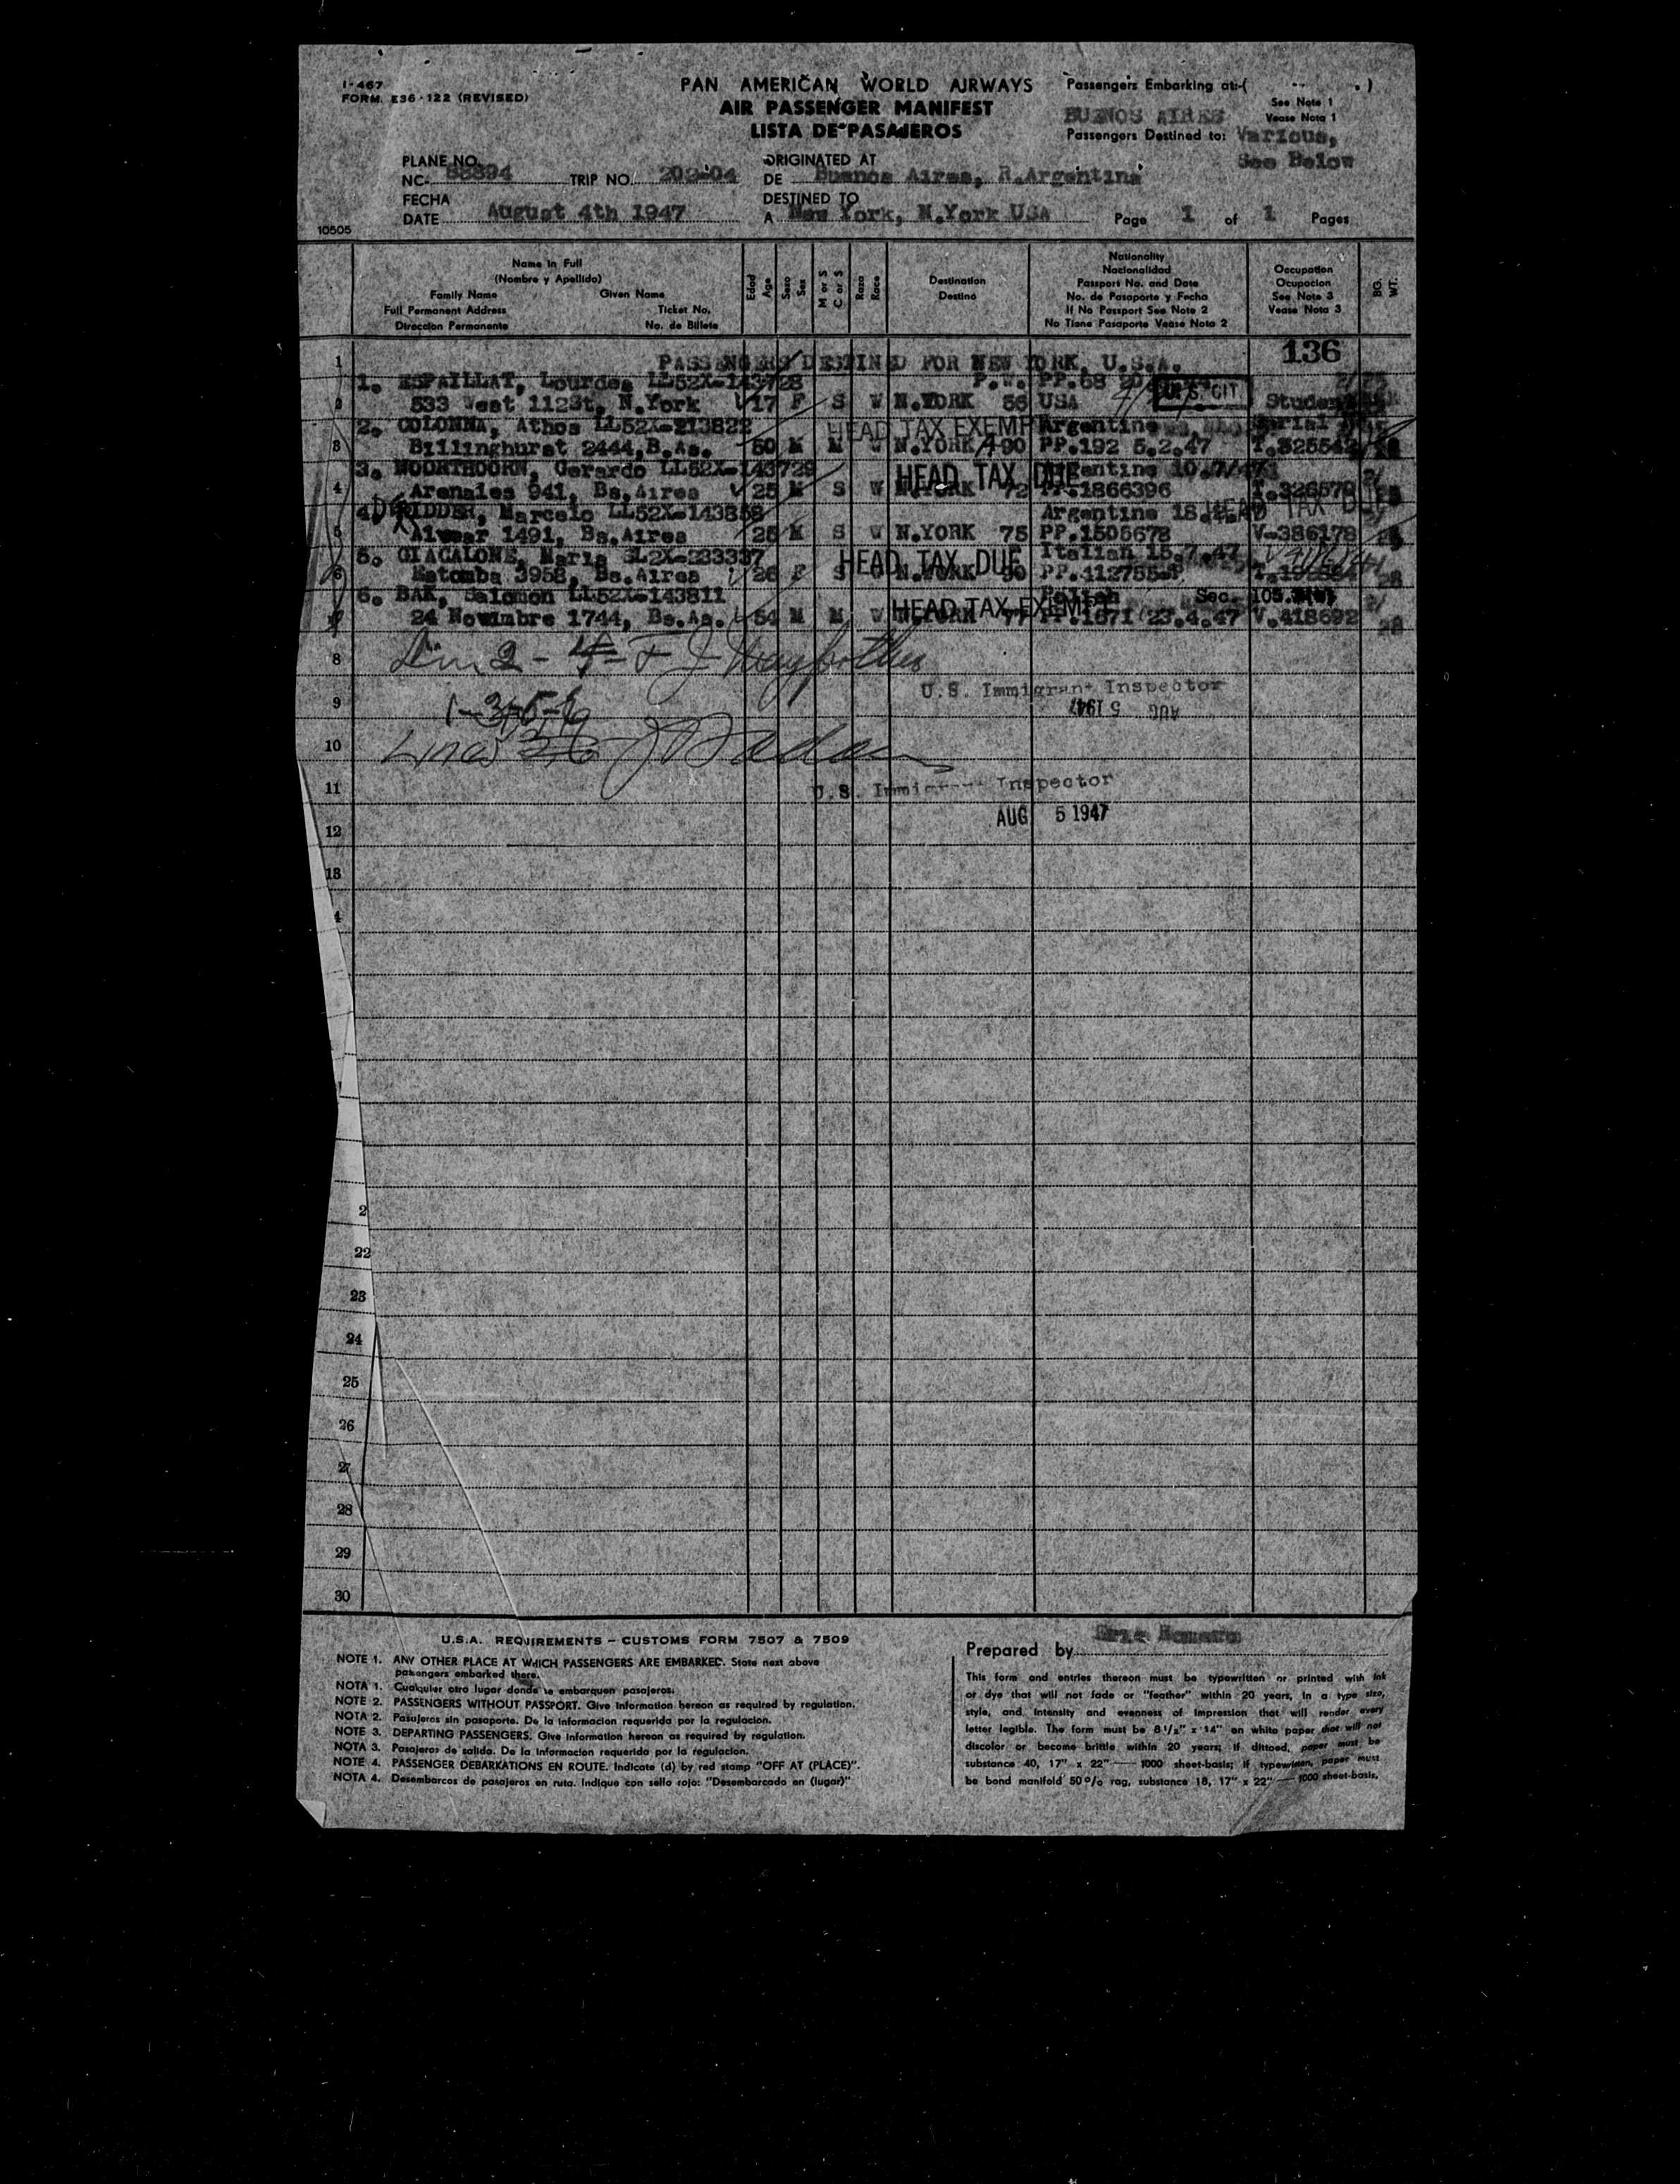 I-467
FORM. E36-122 (REVISED)
PAN AMERICAN WORLD AIRWAYS
AIR PASSENGER MANIFEST
LISTA DE PASAJEROS
Passengers Embarking at:-( . )
See Note 1
Vease Nota 1
BUENOS AIRES
Passengers Destined to: Various,
See Below
PLANE NO.
NC- 88894 TRIP NO. 202-04
ORIGINATED AT
DE Buenos Aires, R.Argentina
FECHA
DATE August 4th 1947
DESTINED TO
A New York, N.York USA
Page 1 of 1 Pages
10505
Name in Full
(Nombre y Apellido)
Family Name Given Name
Full Permanent Address Ticket No.
Direccion Permanente No. de Billete
Edad
Age
Sexo
Sex
M or S
C or S
Raza
Race
Destination
Destino
Nationality
Nacionalidad
Passport No. and Date
No. de Pasaporte y Fecha
If No Passport See Note 2
No Tiene Pasaporte Vease Nota 2
Occupation
Ocupacion
See Note 3
Vease Nota 3
BG.
WT.
136
1 PASSENGERS DESTINED FOR NEW YORK, U.S.A.
1. ESPAILLAT, Lourdes LL52X-143728 P.W. PP.68
2 533 West 112St, N.York 17 F S W N.YORK 56 USA U.S. CIT Student
2. COLONNA, Athos LL52X-213822 HEAD TAX EXEMPT Argentine Serial
3 Billinghurst 2444,B.As. 50 M M W N.YORK 90 PP.192 5.2.47 T.325542
3. NOORTHOORN, Gerardo LL52X-143729 HEAD TAX DUE Argentine 10.7/47
4 Arenales 941, Bs.Aires 25 M S W N.YORK 72 PP.1866396 T.326579
4. DE RIDDER, Marcelo LL52X-143858 Argentine 18. HEAD TAX DUE
5 Alvear 1491, Bs.Aires 25 M S W N.YORK 75 PP.1506678 V-386178
5. GIACALONE, Maria LL2X-233337 HEAD TAX DUE Italian 15.7.47
6 Batomba 3958, Bs.Aires 26 F S N.YORK
6. BAK, Salomon LL52X-143811 HEAD TAX EXEMPT Polish Sec. 105.
7 24 Novimbre 1744, Bs.As. 54 M M W N.YORK 77 PP.1671 23.4.47 V.418692 28
8
U.S. Immigrant Inspector
9
AUG 5 1947
1-3-5-6
10 Lines
11 U.S. Immigrant Inspector
AUG 5 1947
12
13
4
2
22
23
24
25
26
27
28
29
30
U.S.A. REQUIREMENTS – CUSTOMS FORM 7507 & 7509
NOTE 1. ANY OTHER PLACE AT WHICH PASSENGERS ARE EMBARKED. State next above
passengers embarked there.
NOTA 1. Cualquier otro lugar donde se embarquen pasajeros.
NOTE 2. PASSENGERS WITHOUT PASSPORT. Give information hereon as required by regulation.
NOTA 2. Pasajeros sin pasaporte. De la informacion requerida por la regulacion.
NOTE 3. DEPARTING PASSENGERS. Give information hereon as required by regulation.
NOTA 3. Pasajeros de salida. De la informacion requerida por la regulacion.
NOTE 4. PASSENGER DEBARKATIONS EN ROUTE. Indicate (d) by red stamp "OFF AT (PLACE)".
NOTA 4. Desembarcos de pasajeros en ruta. Indique con sello rojo: "Desembarcado en (lugar)"
Prepared by
This form and entries thereon must be typewritten or printed with ink
or dye that will not fade or "feather" within 20 years, in a type size,
style, and intensity and evenness of impression that will render every
letter legible. The form must be 8 1/2" x 14" on white paper that will not
discolor or become brittle within 20 years; if dittoed, paper must be
substance 40, 17" x 22" — 1000 sheet-basis; if typewritten, paper must
be bond manifold 50% rag, substance 18, 17" x 22" — 1000 sheet-basis.